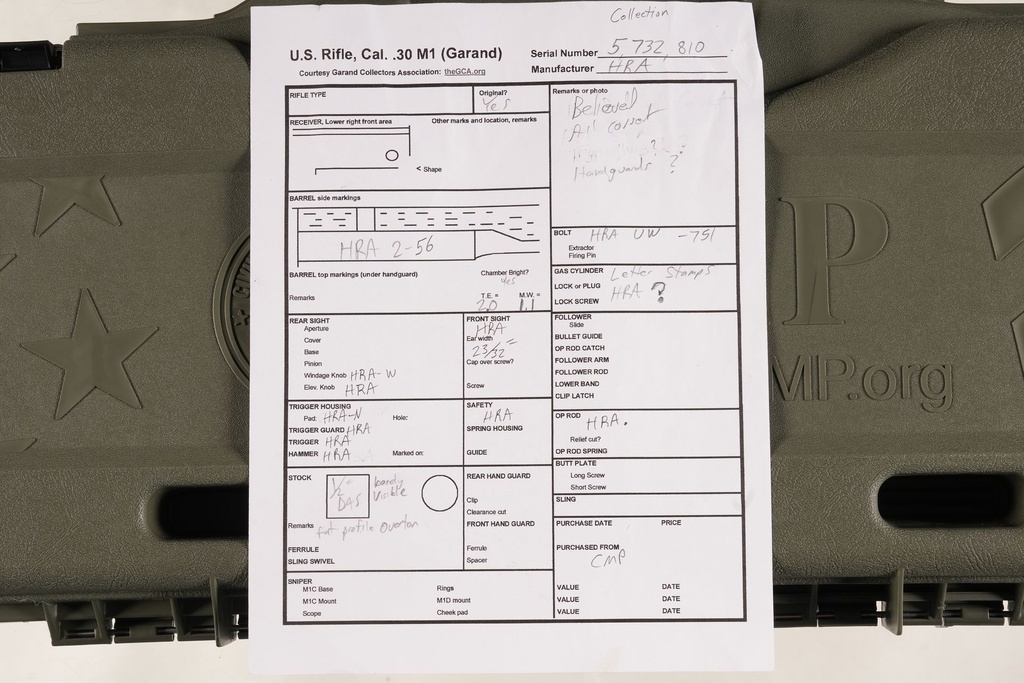 Collection
U.S. Rifle, Cal. .30 M1 (Garand)
Serial Number 5,732,810
Courtesy Garand Collectors Association: theGCA.org
Manufacturer HRA
RIFLE TYPE
Original?
Yes
Remarks or photo
Believed
All correct
Handguards ?
RECEIVER, Lower right front area
Other marks and location, remarks
< Shape
BARREL side markings
HRA 2-56
BARREL top markings (under handguard)
Chamber Bright?
yes
Remarks
T.E. =
2.0
M.W. =
1.1
BOLT HRA UW -751
Extractor
Firing Pin
GAS CYLINDER Letter Stamps
LOCK or PLUG HRA ?
LOCK SCREW
REAR SIGHT
Aperture
Cover
Base
Pinion
Windage Knob HRA-W
Elev. Knob HRA
FRONT SIGHT
HRA
Ear width
23/32"
Cap over screw?
Screw
FOLLOWER
Slide
BULLET GUIDE
OP ROD CATCH
FOLLOWER ARM
FOLLOWER ROD
LOWER BAND
CLIP LATCH
TRIGGER HOUSING
Pad: HRA-N
Hole:
TRIGGER GUARD HRA
TRIGGER HRA
HAMMER HRA
Marked on:
SAFETY
HRA
SPRING HOUSING
GUIDE
OP ROD
HRA.
Relief cut?
OP ROD SPRING
STOCK
1/2"
DAS
barely
visible
Remarks fat profile Overton
FERRULE
SLING SWIVEL
REAR HAND GUARD
Clip
Clearance cut
FRONT HAND GUARD
Ferrule
Spacer
BUTT PLATE
Long Screw
Short Screw
SLING
PURCHASE DATE
PRICE
PURCHASED FROM
CMP
VALUE DATE
VALUE DATE
VALUE DATE
SNIPER
M1C Base
M1C Mount
Scope
Rings
M1D mount
Cheek pad
P
MP.org